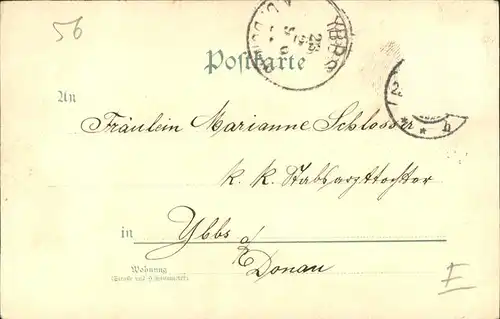 56
YBBS
Postkarte
An
Fräulein Marianne Schlosser
k. k. Stabsarzttochter
in Ybbs
a/d
Donau
Wohnung
(Straße und Hausnummer)